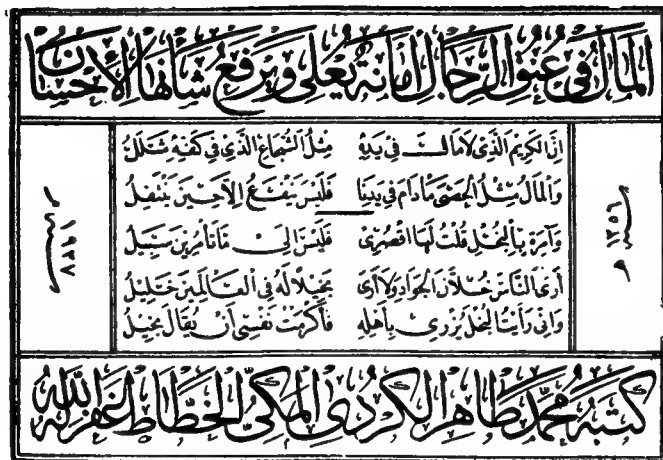 المال في عنق الرجال أمانة يعلي ويرفع شأنها الإحسان
إن الكريم الذي لا مال في يده مثل الشجاع الذي في كفه شلل
والمال مثل الحصى ما دام في يدنا فليس ينفع إلا حين ينتقل
وآمرة بالبخل قلت لها اقصري فليس إلى ما تأمرين سبيل
أرى الناس خلان الجواد ولا أرى بخيلا له في العالمين خليل
وإني رأيت البخل يزري بأهله فأكرمت نفسي أن يقال بخيل
سنة ١٣٥٦
سنة ١٩٣٧ م
كتبه محمد طاهر الكردي المكي الخطاط غفر الله له